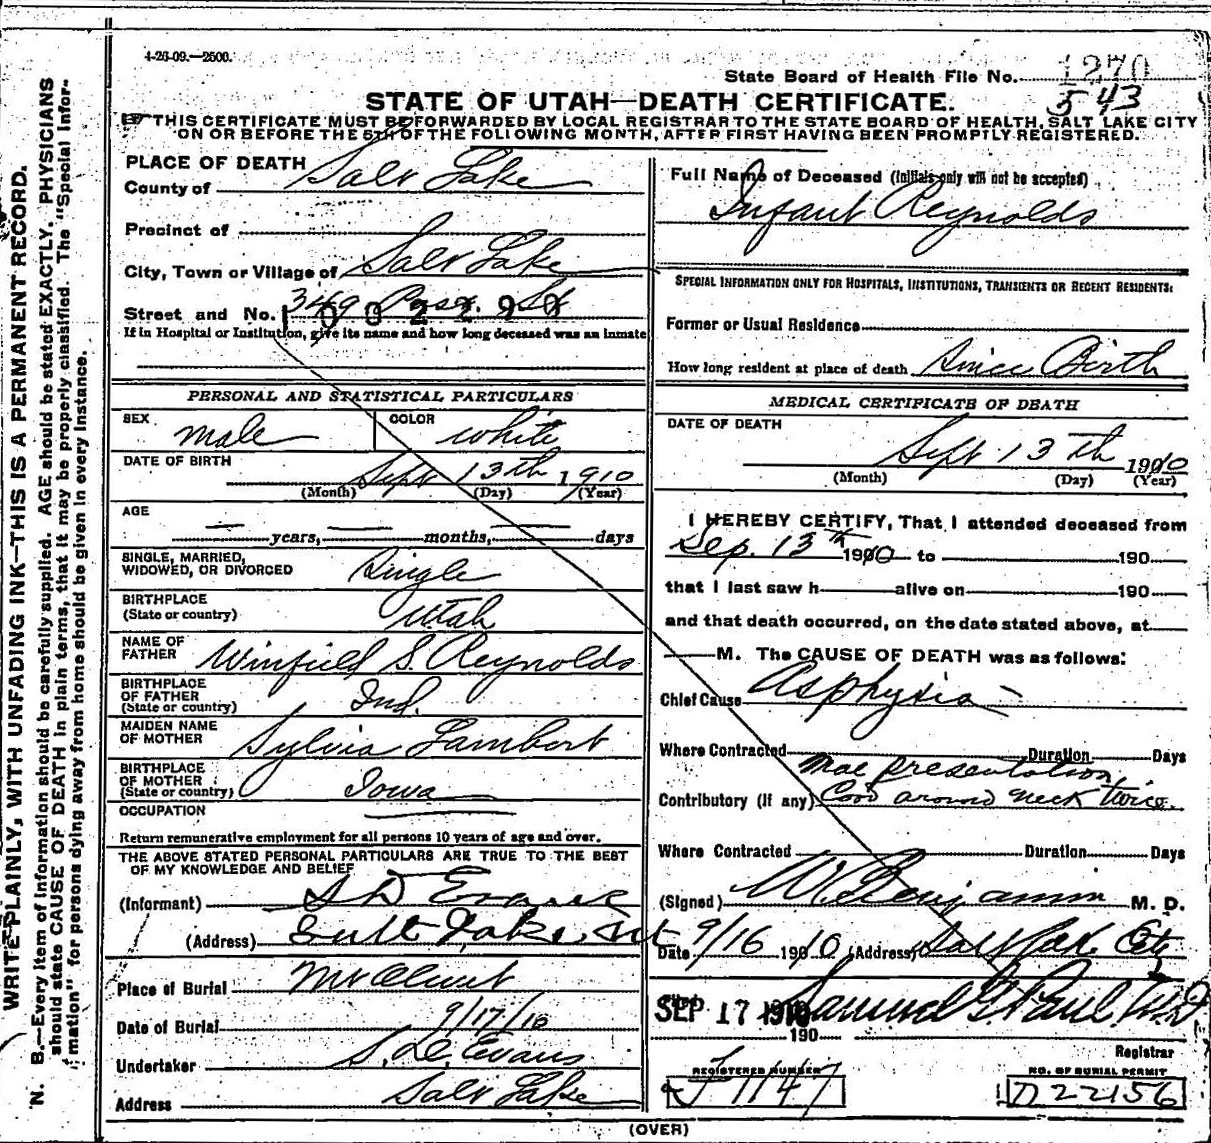 4-26-09.—2500.
State Board of Health File No. 1270
543
STATE OF UTAH—DEATH CERTIFICATE.
THIS CERTIFICATE MUST BE FORWARDED BY LOCAL REGISTRAR TO THE STATE BOARD OF HEALTH, SALT LAKE CITY
ON OR BEFORE THE 5TH OF THE FOLLOWING MONTH, AFTER FIRST HAVING BEEN PROMPTLY REGISTERED.
WRITE PLAINLY, WITH UNFADING INK—THIS IS A PERMANENT RECORD.
N. B.—Every item of information should be carefully supplied. AGE should be stated EXACTLY. PHYSICIANS
should state CAUSE OF DEATH in plain terms, that it may be properly classified. The "Special Infor-
mation" for persons dying away from home should be given in every instance.
PLACE OF DEATH
County of Salt Lake
Precinct of
City, Town or Village of Salt Lake
Street and No. 349 St
If in Hospital or Institution, give its name and how long deceased was an inmate
PERSONAL AND STATISTICAL PARTICULARS
SEX male COLOR white
DATE OF BIRTH Sept 13th 1910
(Month) (Day) (Year)
AGE
— years, — months, — days
SINGLE, MARRIED,
WIDOWED, OR DIVORCED Single
BIRTHPLACE
(State or country) Utah
NAME OF
FATHER Winfield S. Reynolds
BIRTHPLACE
OF FATHER
(State or country) Ind.
MAIDEN NAME
OF MOTHER Sylvia Lambert
BIRTHPLACE
OF MOTHER
(State or country) Iowa
OCCUPATION
Return remunerative employment for all persons 10 years of age and over.
THE ABOVE STATED PERSONAL PARTICULARS ARE TRUE TO THE BEST
OF MY KNOWLEDGE AND BELIEF
(Informant) S D Evans
(Address) Salt Lake, Ut
Place of Burial Mt Olivet
Date of Burial 9/17/10
Undertaker S. D. Evans
Address Salt Lake
Full Name of Deceased (Initials only will not be accepted)
Infant Reynolds
SPECIAL INFORMATION ONLY FOR HOSPITALS, INSTITUTIONS, TRANSIENTS OR RECENT RESIDENTS:
Former or Usual Residence
How long resident at place of death Since Birth
MEDICAL CERTIFICATE OF DEATH
DATE OF DEATH
Sept 13th 1910
(Month) (Day) (Year)
I HEREBY CERTIFY, That I attended deceased from
Sep. 13th 1910 to 190
that I last saw h alive on 190
and that death occurred, on the date stated above, at
M. The CAUSE OF DEATH was as follows:
Chief Cause Asphyxia
Where Contracted Duration Days
Mal presentation,
Contributory (if any) Cord around neck twice.
Where Contracted Duration Days
(Signed) W. Benjamin M. D.
Date 9/16 1910 (Address) Salt Lake City
SEP 17 1910 Samuel G. Paul M D
190
Registrar
REGISTERED NUMBER
J1147
NO. OF BURIAL PERMIT
D22156
(OVER)